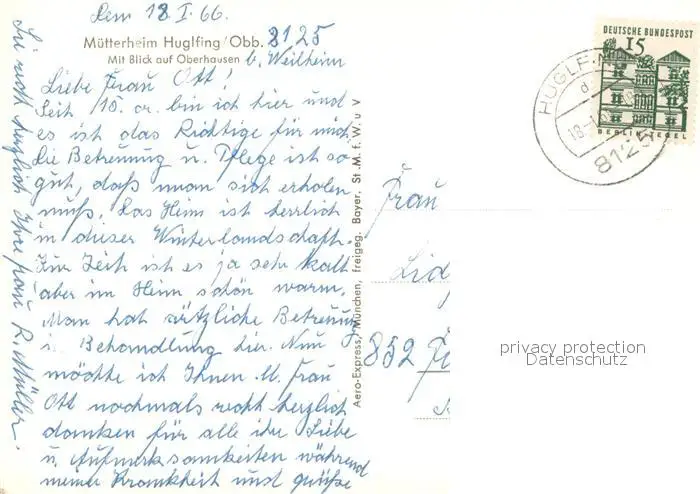 Dem 18.I.66.
Mütterheim Huglfing/Obb. 8125
Mit Blick auf Oberhausen b. Weilheim
Liebe Frau Ott!
Seit 15. cr. bin ich hier und
es ist das Richtige für mich.
Die Betreuung u. Pflege ist so
gut, daß man sich erholen
muß. Das Heim ist herrlich
in dieser Winterlandschaft.
Zur Zeit ist es ja sehr kalt
aber im Heim schön warm.
Man hat ärztliche Betreuung
u. Behandlung hier. Nun
möchte ich Ihnen lb. Frau
Ott nochmals recht herzlich
danken für alle ihre Liebe
u. Aufmerksamkeiten während
meiner Krankheit und grüße
Sie recht herzlich Ihre Frau R. Müller.
Aero-Express, München, freigeg. Bayer. St. M. f. W. u V
DEUTSCHE BUNDESPOST
15
BERLIN-TEGEL
HUGLFIN
d
18.-1
8125
Frau
Lid
852
privacy protection
Datenschutz